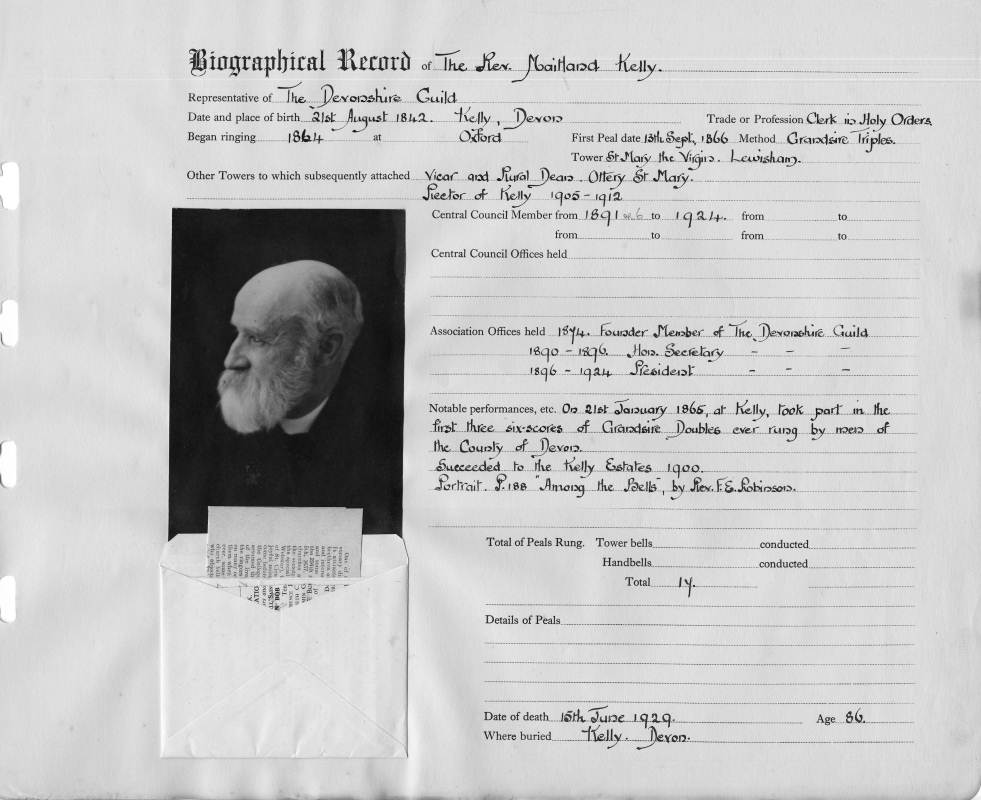 Biographical Record of The Rev. Maitland Kelly.
Representative of The Devonshire Guild
Date and place of birth 21st August 1842. Kelly, Devon Trade or Profession Clerk in Holy Orders
Began ringing 1864 at Oxford First Peal date 13th Sept, 1866 Method Grandsire Triples.
Tower St Mary the Virgin. Lewisham.
Other Towers to which subsequently attached Vicar and Rural Dean. Ottery St Mary.
Rector of Kelly 1905-1912
Central Council Member from 1891 or 6 to 1924. from to
from to from to
Central Council Offices held
Association Offices held 1874. Founder Member of The Devonshire Guild
1890 - 1896. Hon. Secretary - - -
1896 - 1924 President - - -
Notable performances, etc. On 21st January 1865, at Kelly, took part in the
first three six-scores of Grandsire Doubles ever rung by men of
the County of Devon.
Succeeded to the Kelly Estates 1900.
Portrait. P.188 "Among the Bells", by Rev. F.E. Robinson.
Total of Peals Rung. Tower bells conducted
Handbells conducted
Total 14.
Details of Peals
Date of death 15th June 1929. Age 86.
Where buried Kelly. Devon.